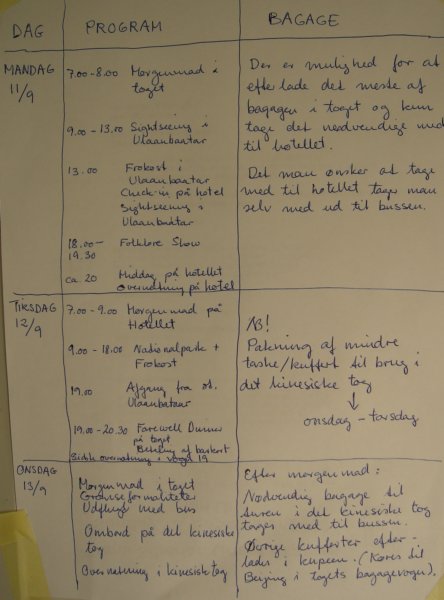 DAG PROGRAM BAGAGE
MANDAG
11/9
7.00-8.00 Morgenmad i
toget
9.00-13.00 Sightseeing i
Ulaanbaatar
13.00 Frokost i
Ulaanbaatar
Check-in på hotel
Sightseeing i
Ulaanbaatar
18.00-
19.30 Folklore Show
ca 20 Middag på hotellet
overnatning på hotel
Der er mulighed for at
efterlade det meste af
bagagen i toget og kun
tage det nødvendige med
til hotellet.
Det man ønsker at tage
med til hotellet tages man
selv med ud til bussen.
TIRSDAG
12/9
7.00-9.00 Morgenmad på
Hotellet
9.00-18.00 Nationalpark +
Frokost
19.00 Afgang fra
Ulaanbataar
19.00-20.30 Farewell Dinner
på toget
Betaling af
Sidste overnatning i vogn 19
NB!
Pakning af mindre
taske/kuffert til brug i
det kinesiske tog
↓
onsdag - torsdag
ONSDAG
13/9
Morgenmad i toget
Grænseformaliteter
Udflugt med bus
Ombord på det kinesiske
tog
Overnatning i kinesisk tog
Efter morgenmad:
Nødvendig bagage til
turen i det kinesiske tog
tages med til bussen.
Øvrige kufferter efter-
lades i kupeen. (Køres til
Beijing i togets bagagevogn).